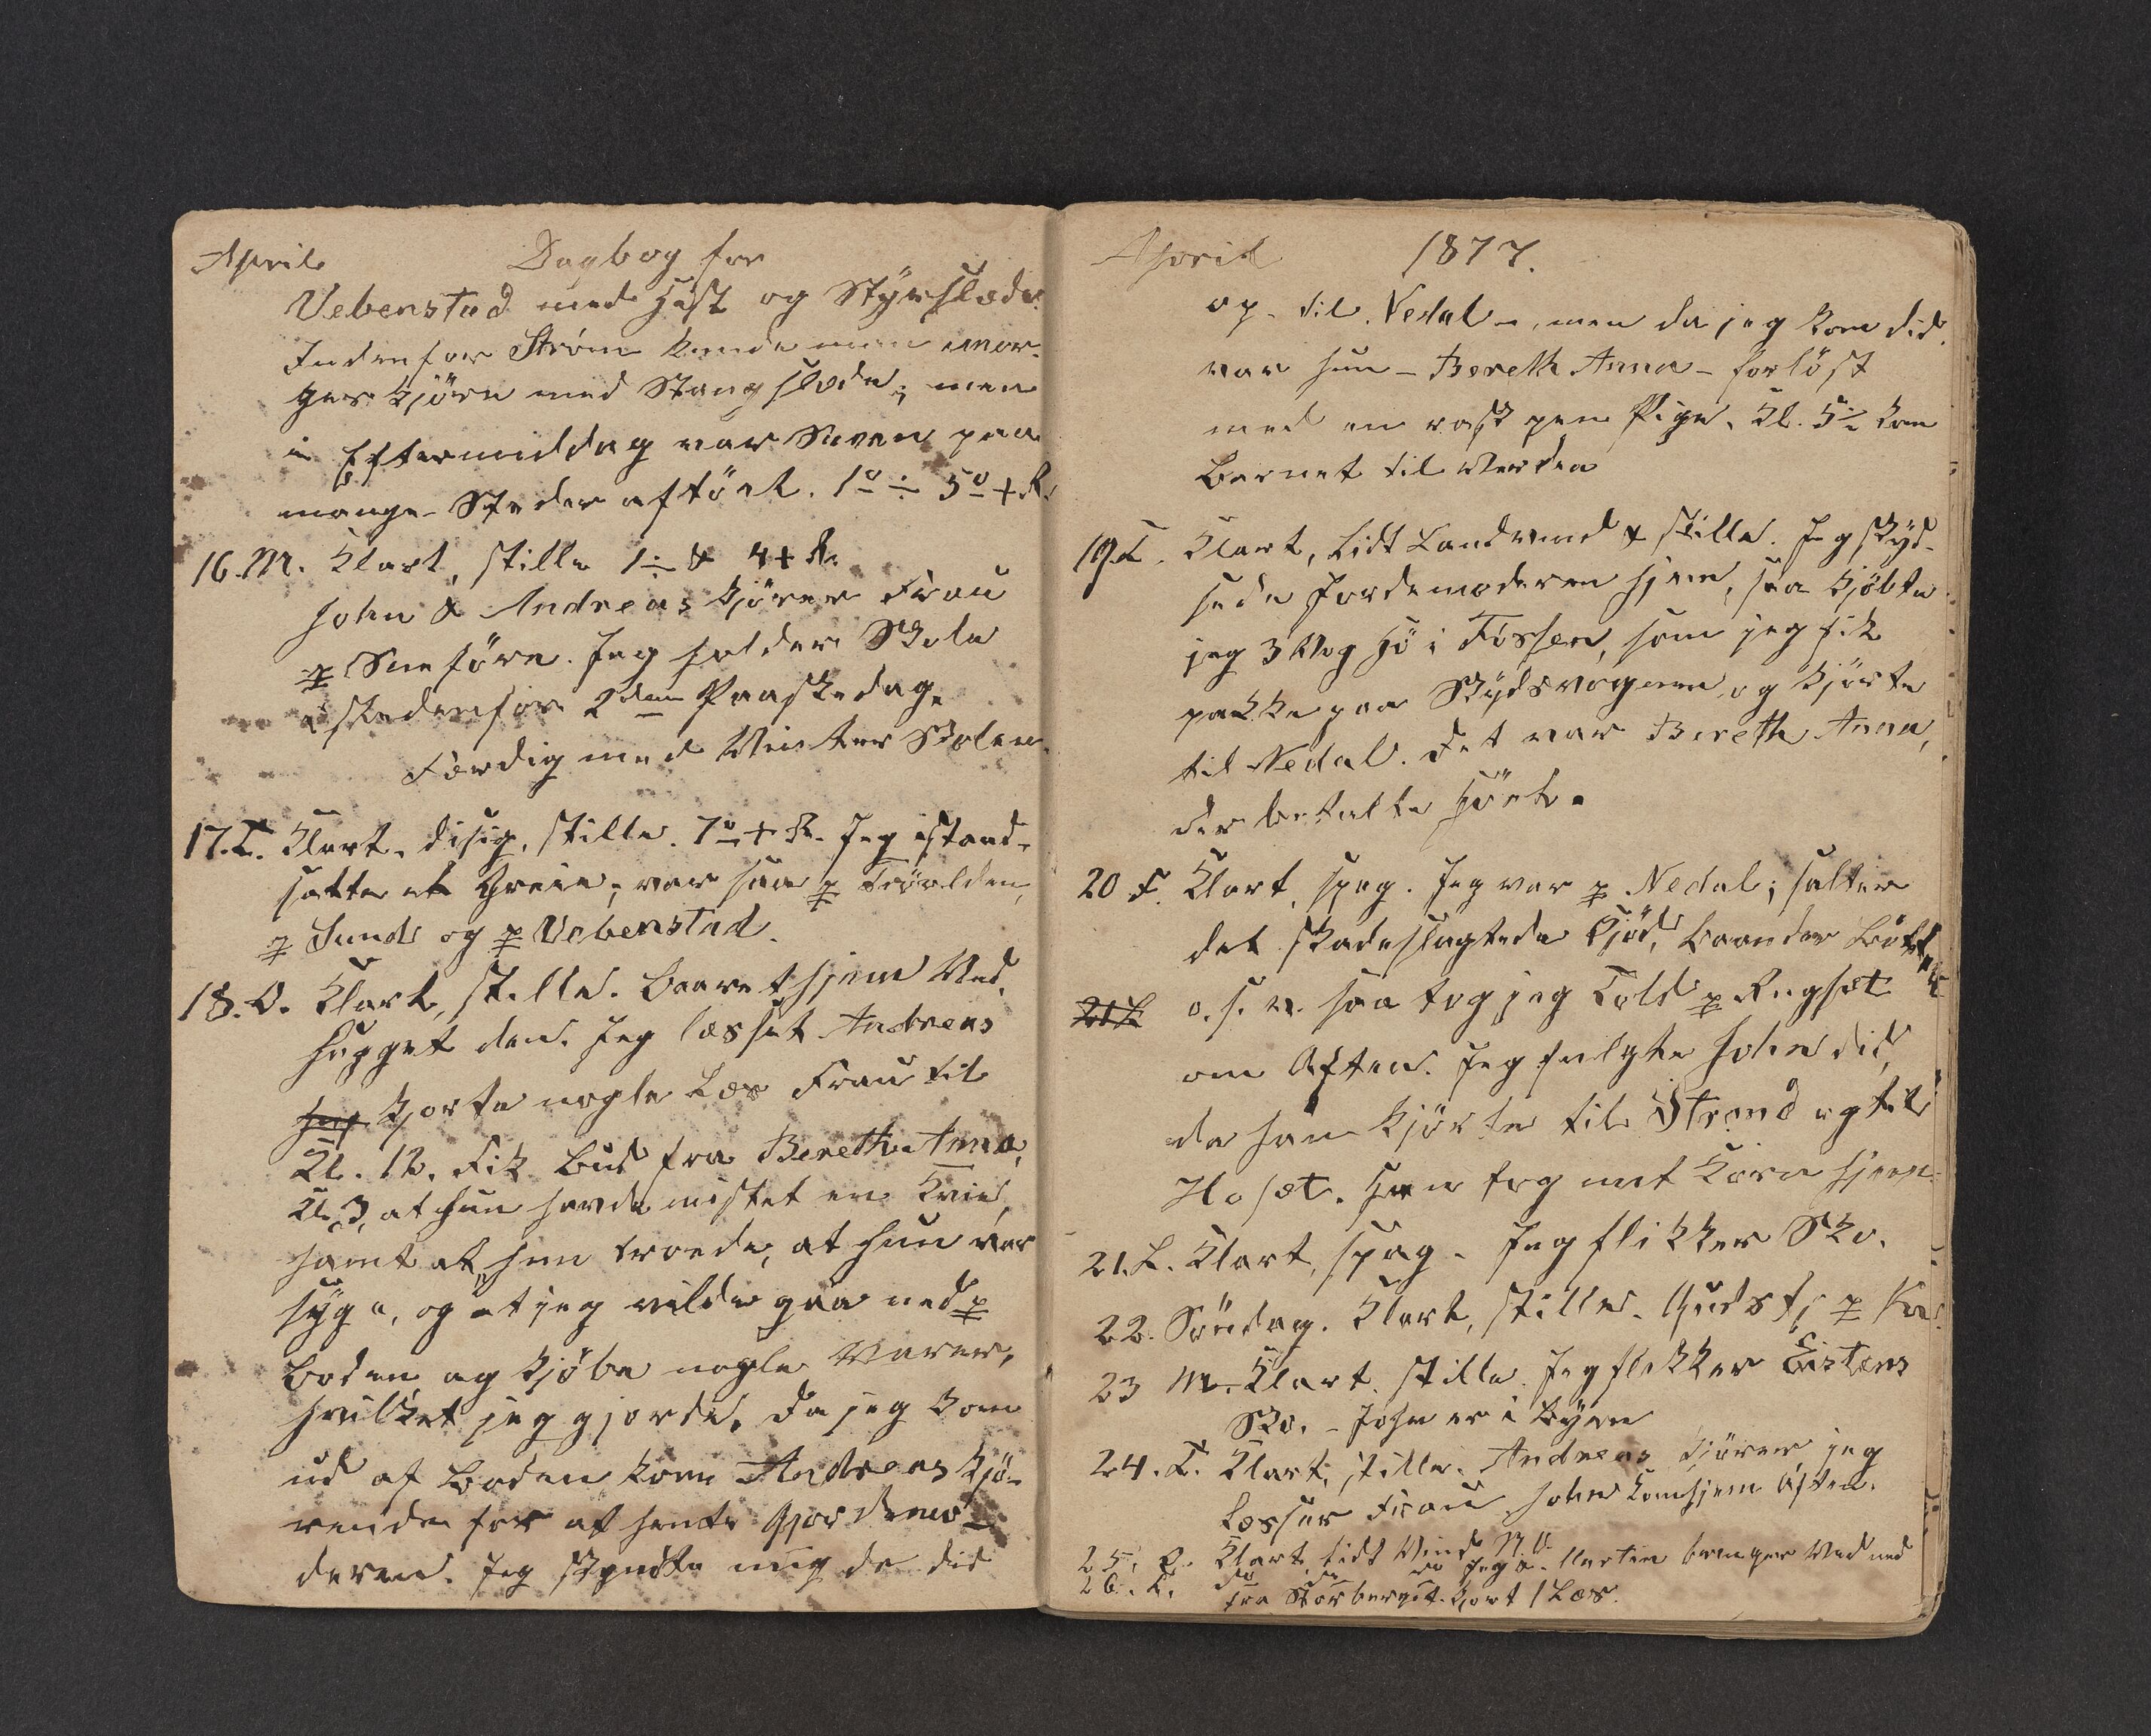 April Dagbog for
Vebenstad med Hest og Styrslæde
Indenfor Strøm kunde man imor-
ges kjöre med Stangslæde; men
i Eftermiddag var Sneen paa
mange Steder aftöet. 1° ÷ 5° + R.
16. M. Klart, stille 1 ÷ & 4 + R.
John & Andreas kjörer Frau
p Sneföre. Jeg holder Skole
istedenfor 2den Paaskedag.
Færdig med Vinter Skolen.
17. T. Klart, disig, stille. 7° + R. Jeg istand-
satte et Greie; var saa p
p Sund og p Vebenstad.
18. O. Klart, stille. Baaret hjem Ved,
hugget den. Jeg læsset Andreas
kjorte nogle Læs Frau til
Kl. 12. Fik Bud fra Bereth Anna,
Kl. 3, at hun havde mistet en Kvie,
samt at hun troede, at hun var
syg, og at jeg vilde gaa ned p
Boden og kjöbe nogle Varer,
hvilket jeg gjorde. Da jeg kom
ud af Boden kom Andreas kjö-
rende for at hente Gjordemo-
deren. Jeg skyndte mig da did
April 1877.
op til Nedal -, men da jeg kom did
var hun - Bereth Anna - forlöst
med en rask pen Pige. Kl. 5½ kom
Barnet til Verden
19. T. Klart, lidt Landvind & stille. Jeg skyd-
sede Jordemoderen hjem, saa kjöbte
jeg 3 Vog Hö i Fossen, som jeg fik
pakke paa Skydsvognen, og kjörte
til Nedal. Det var Bereth Anna,
der betalte Höet.
20 F. Klart, spag. Jeg var p Nedal; salter
det skadeslagtede Kjöd, baander Bött
21 L o. s. v. saa tog jeg Told p Rugsæt
om Aften. Jeg fulgte John did,
da han kjörte til Strand og til
Hosæt. Han tog mit Korn hjem.
21. L. Klart, spag. Jeg flikker Sko.
22. Söndag. Klart, stille. Gudstj p
23 M. Klart, stille. Jeg flikker Eistens
Sko. - John er i Byen
24. T. Klart, stille. Andreas kjörer, jeg
læsser Frau, John kom hjem Aften.
25. O. Klart, lidt Vind N.V.
26. T. do do do Jeg & Martin bringer Ved ned
fra Storberget. kjort 1 Læs.